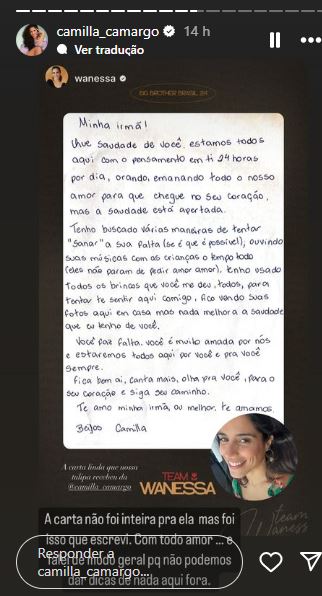 camilla_camargo 14 h
Ver tradução
wanessa
BIG BROTHER BRASIL 24
Minha irmã!
Que saudade de você, estamos todos
aqui com o pensamento em ti 24 horas
por dia, orando, emanando todo o nosso
amor para que chegue no seu coração,
mas a saudade está apertada.
Tenho buscado várias maneiras de tentar
"sanar" a sua falta (se é que é possível), ouvindo
suas músicas com as crianças o tempo todo
(eles não param de pedir amor amor), tenho usado
todos os brincos que você me deu, todos, para
tentar te sentir aqui comigo, fico vendo suas
fotos aqui em casa mas nada melhora a saudade
que eu tenho de você.
Você faz falta, você é muito amada por nós
e estaremos todos aqui por você e pra você
sempre.
Fica bem aí, canta mais, olha pra você, para o
seu coração e siga seu caminho.
Te amo minha irmã, ou melhor, te amamos.
Beijos Camilla
A carta linda que nossa
talipa recebeu da
@camilla_camargo
TEAM
WANESSA
team
A carta não foi inteira pra ela mas foi
isso que escrevi. Com todo amor ... e
falei de modo geral pq não podemos
dar dicas de nada aqui fora.
Responder a
camilla_camargo...